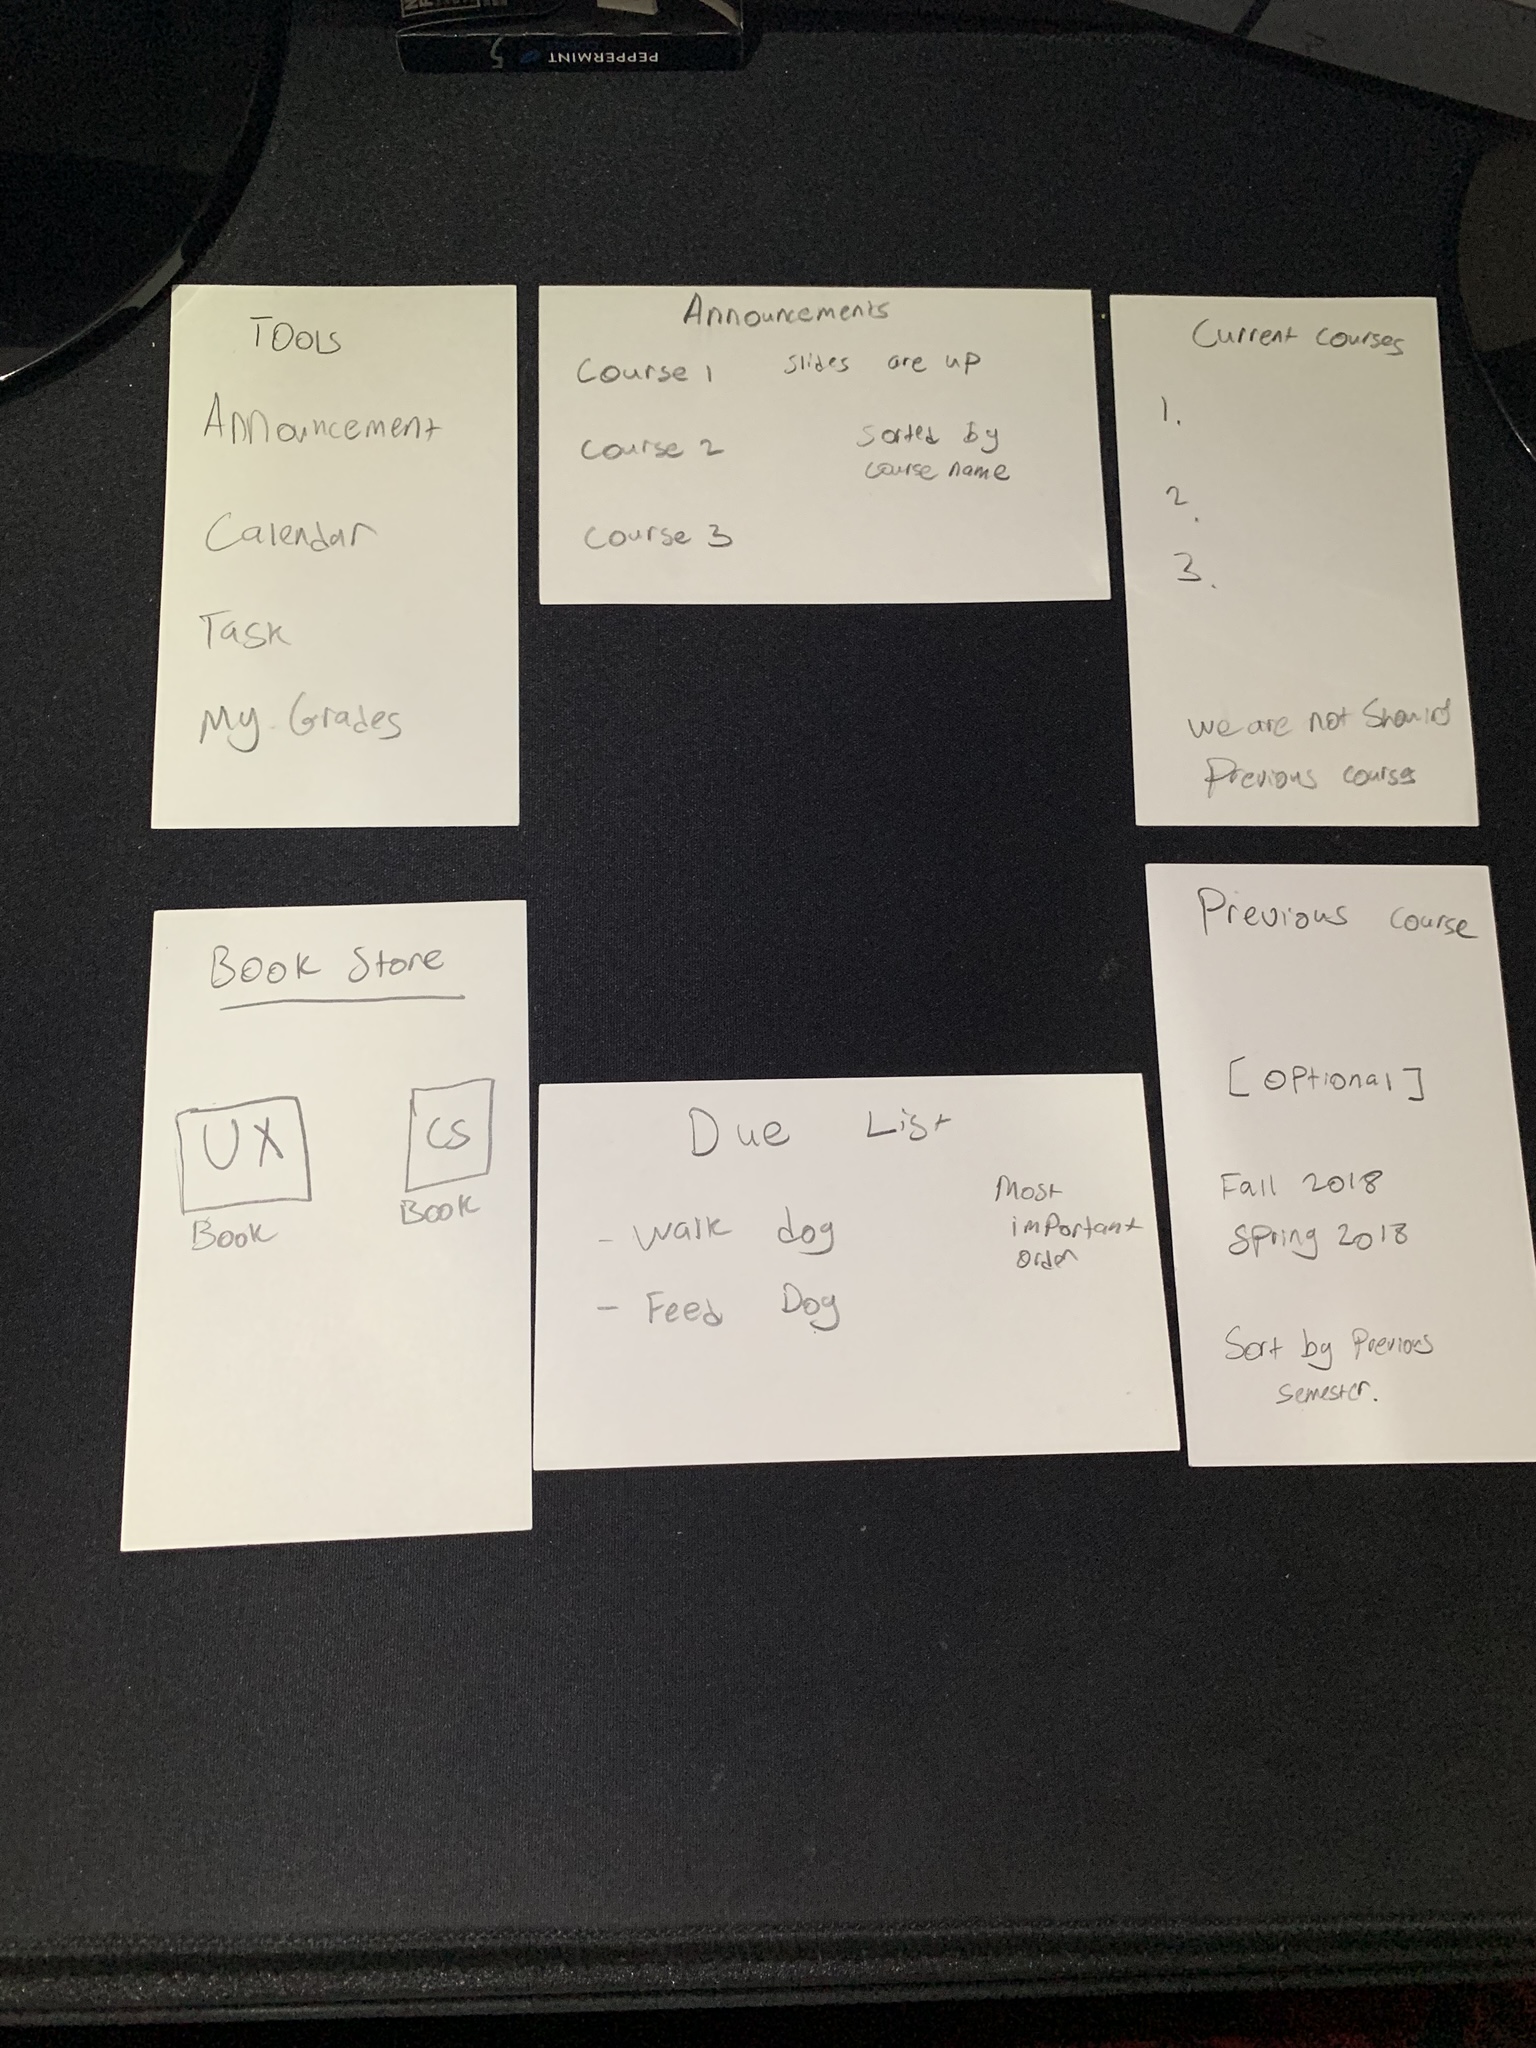 PEPPERMINT 5
TOOLS
Announcement
Calendar
Task
My Grades
Announcements
Course 1 slides are up
Course 2 Sorted by
course name
Course 3
Current courses
1.
2.
3.
we are not Showing
Previous courses
Book Store
UX
Book
CS
Book
Due List
- Walk dog
- Feed Dog
Most
important
order
Previous course
[Optional]
Fall 2018
Spring 2018
Sort by Previous
semester.